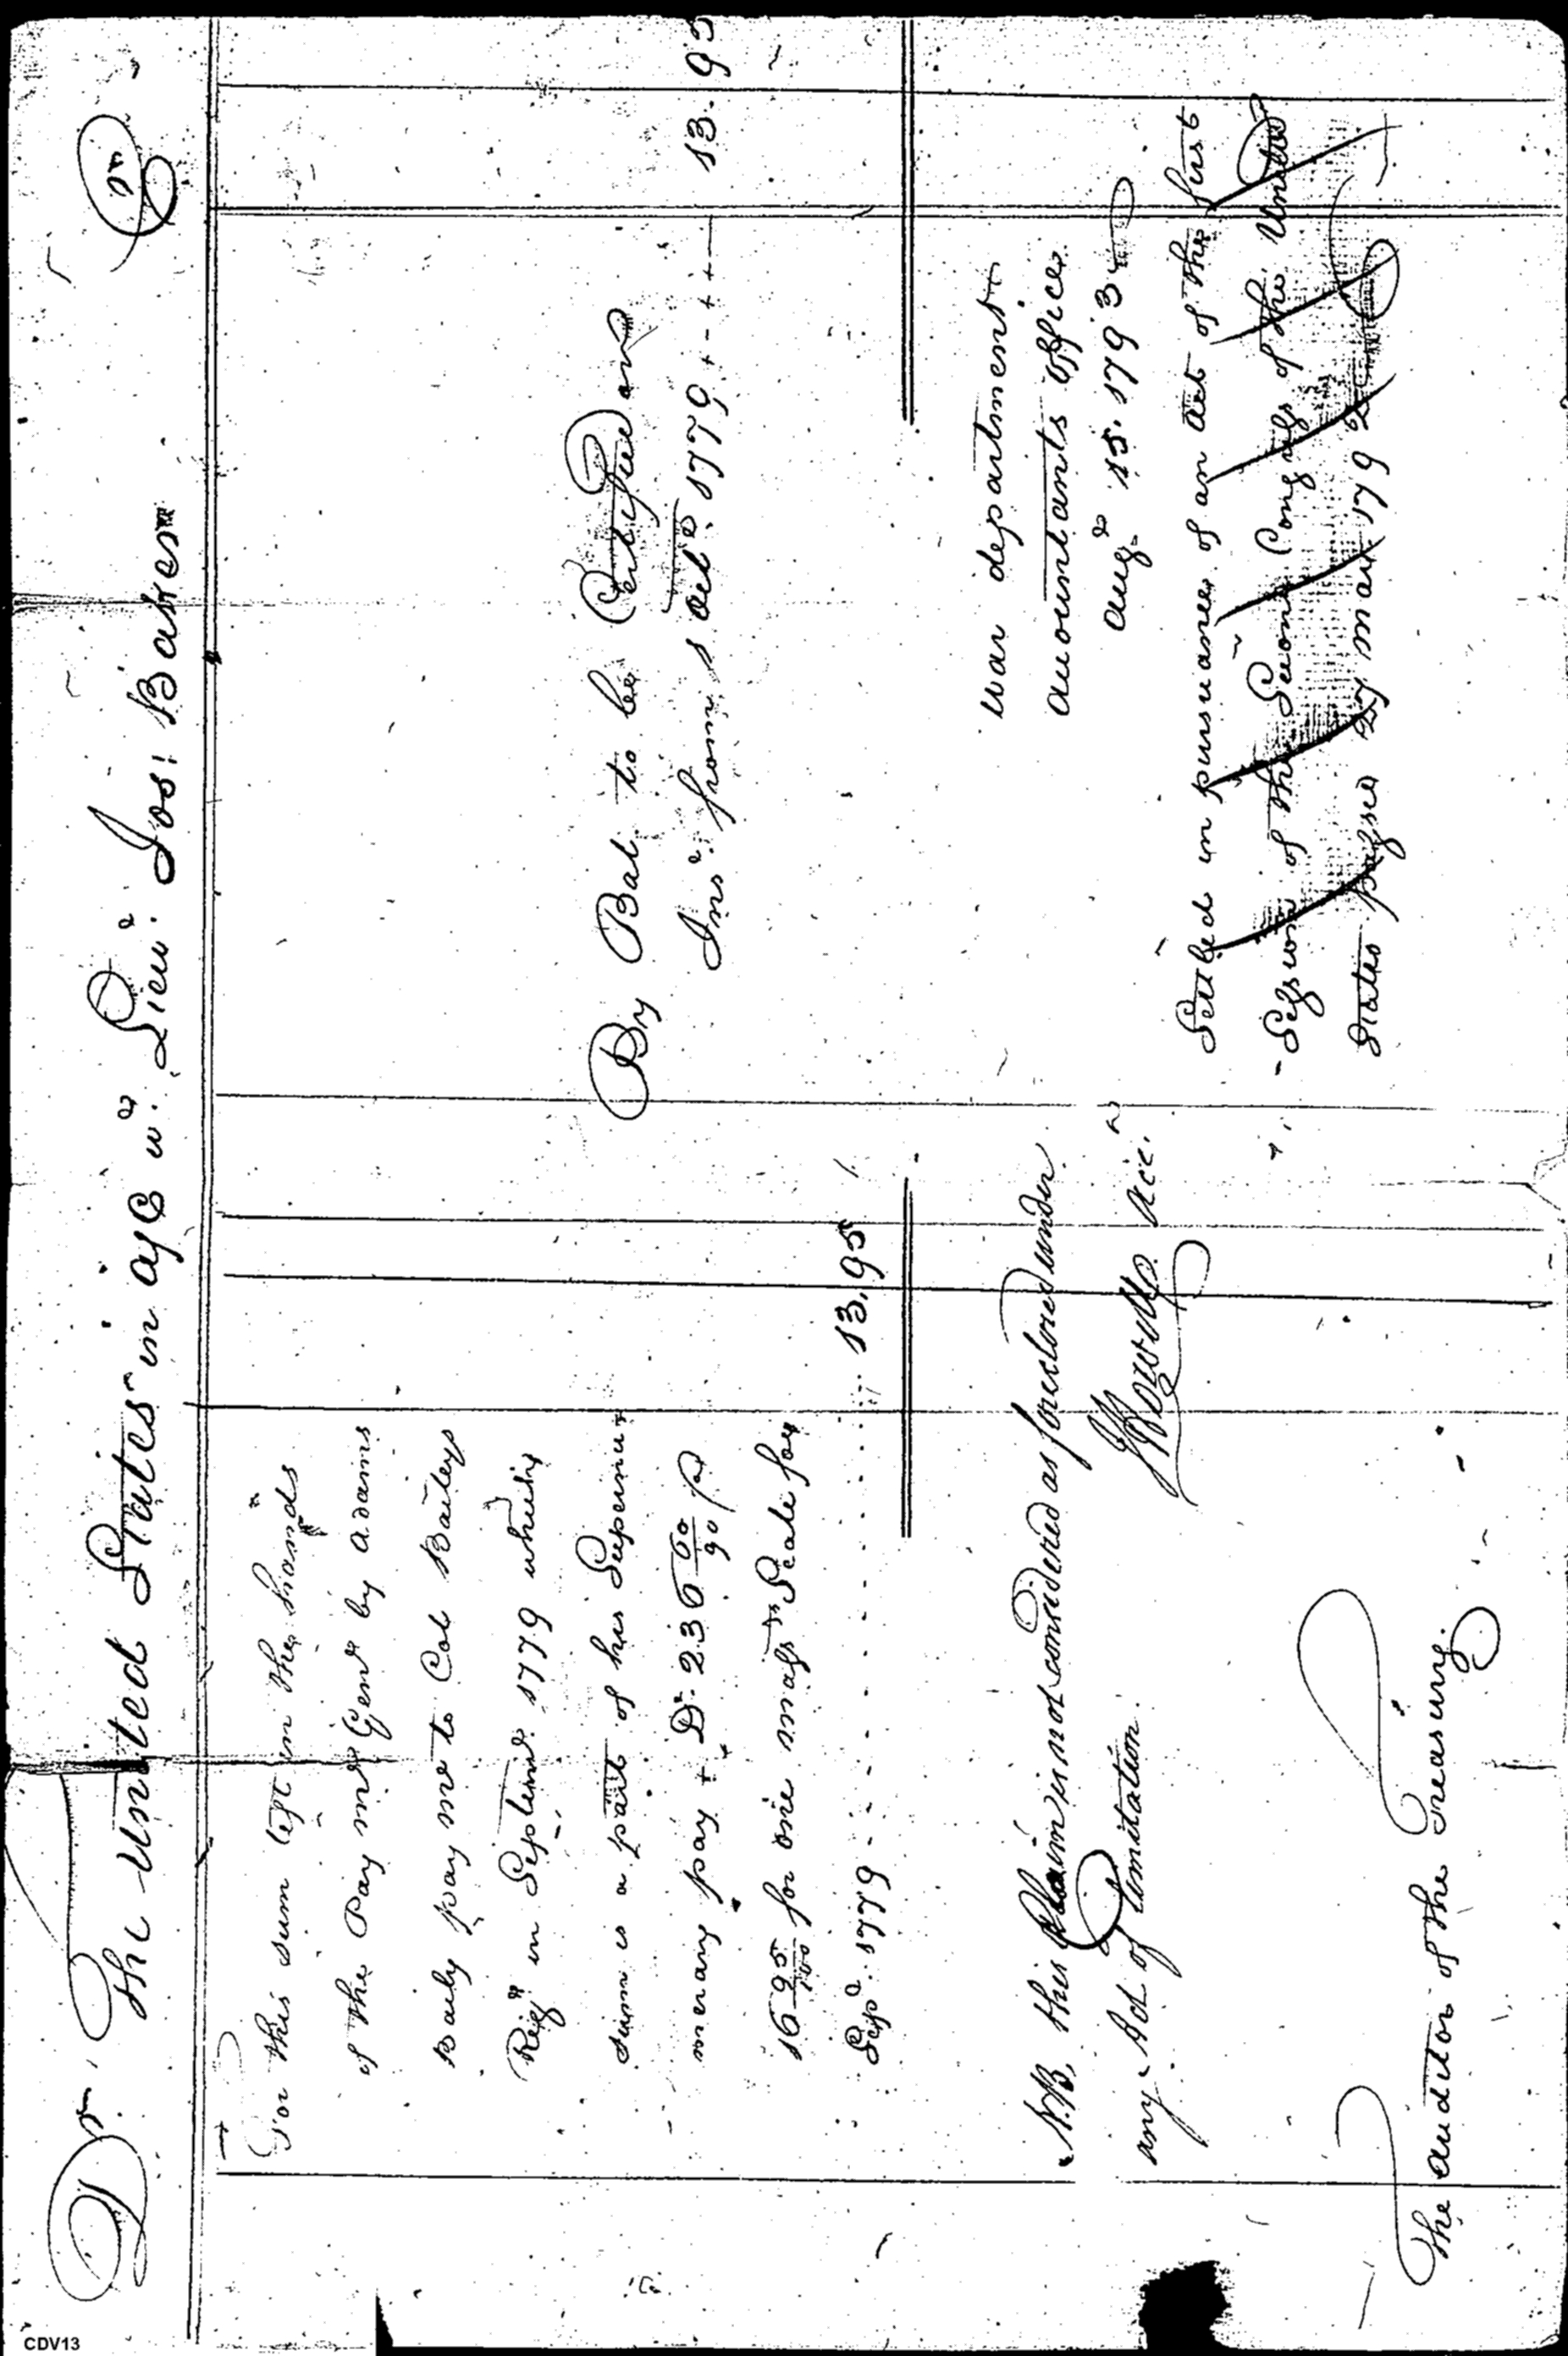 Dr. The United States in a/c wt. Lieut. Jos: Baker Cr
For this sum left in the hands
of the Pay mr Genl by Adams
Baily pay mr to Col Baileys
Regt in Septemr. 1779 which
sum is a part of his Supernu
merary pay + Ds. 236 60/90 pr
16 95/100 for one Scale for
Sepr. 1779 13.95
By Bal to be Certified and
Int. from 1 Octr. 1779 13.95
War department
Accountants Office
Augt 15. 1793
N.B. this Claim is not considered as foreclosed under
any Act of Limitation.
J Howell Acct.
Settled in pursuance of an Act of the first
Session of the Second Congress of the United
States passed 27 March 1792
The Auditor of the Treasury.
CDV13